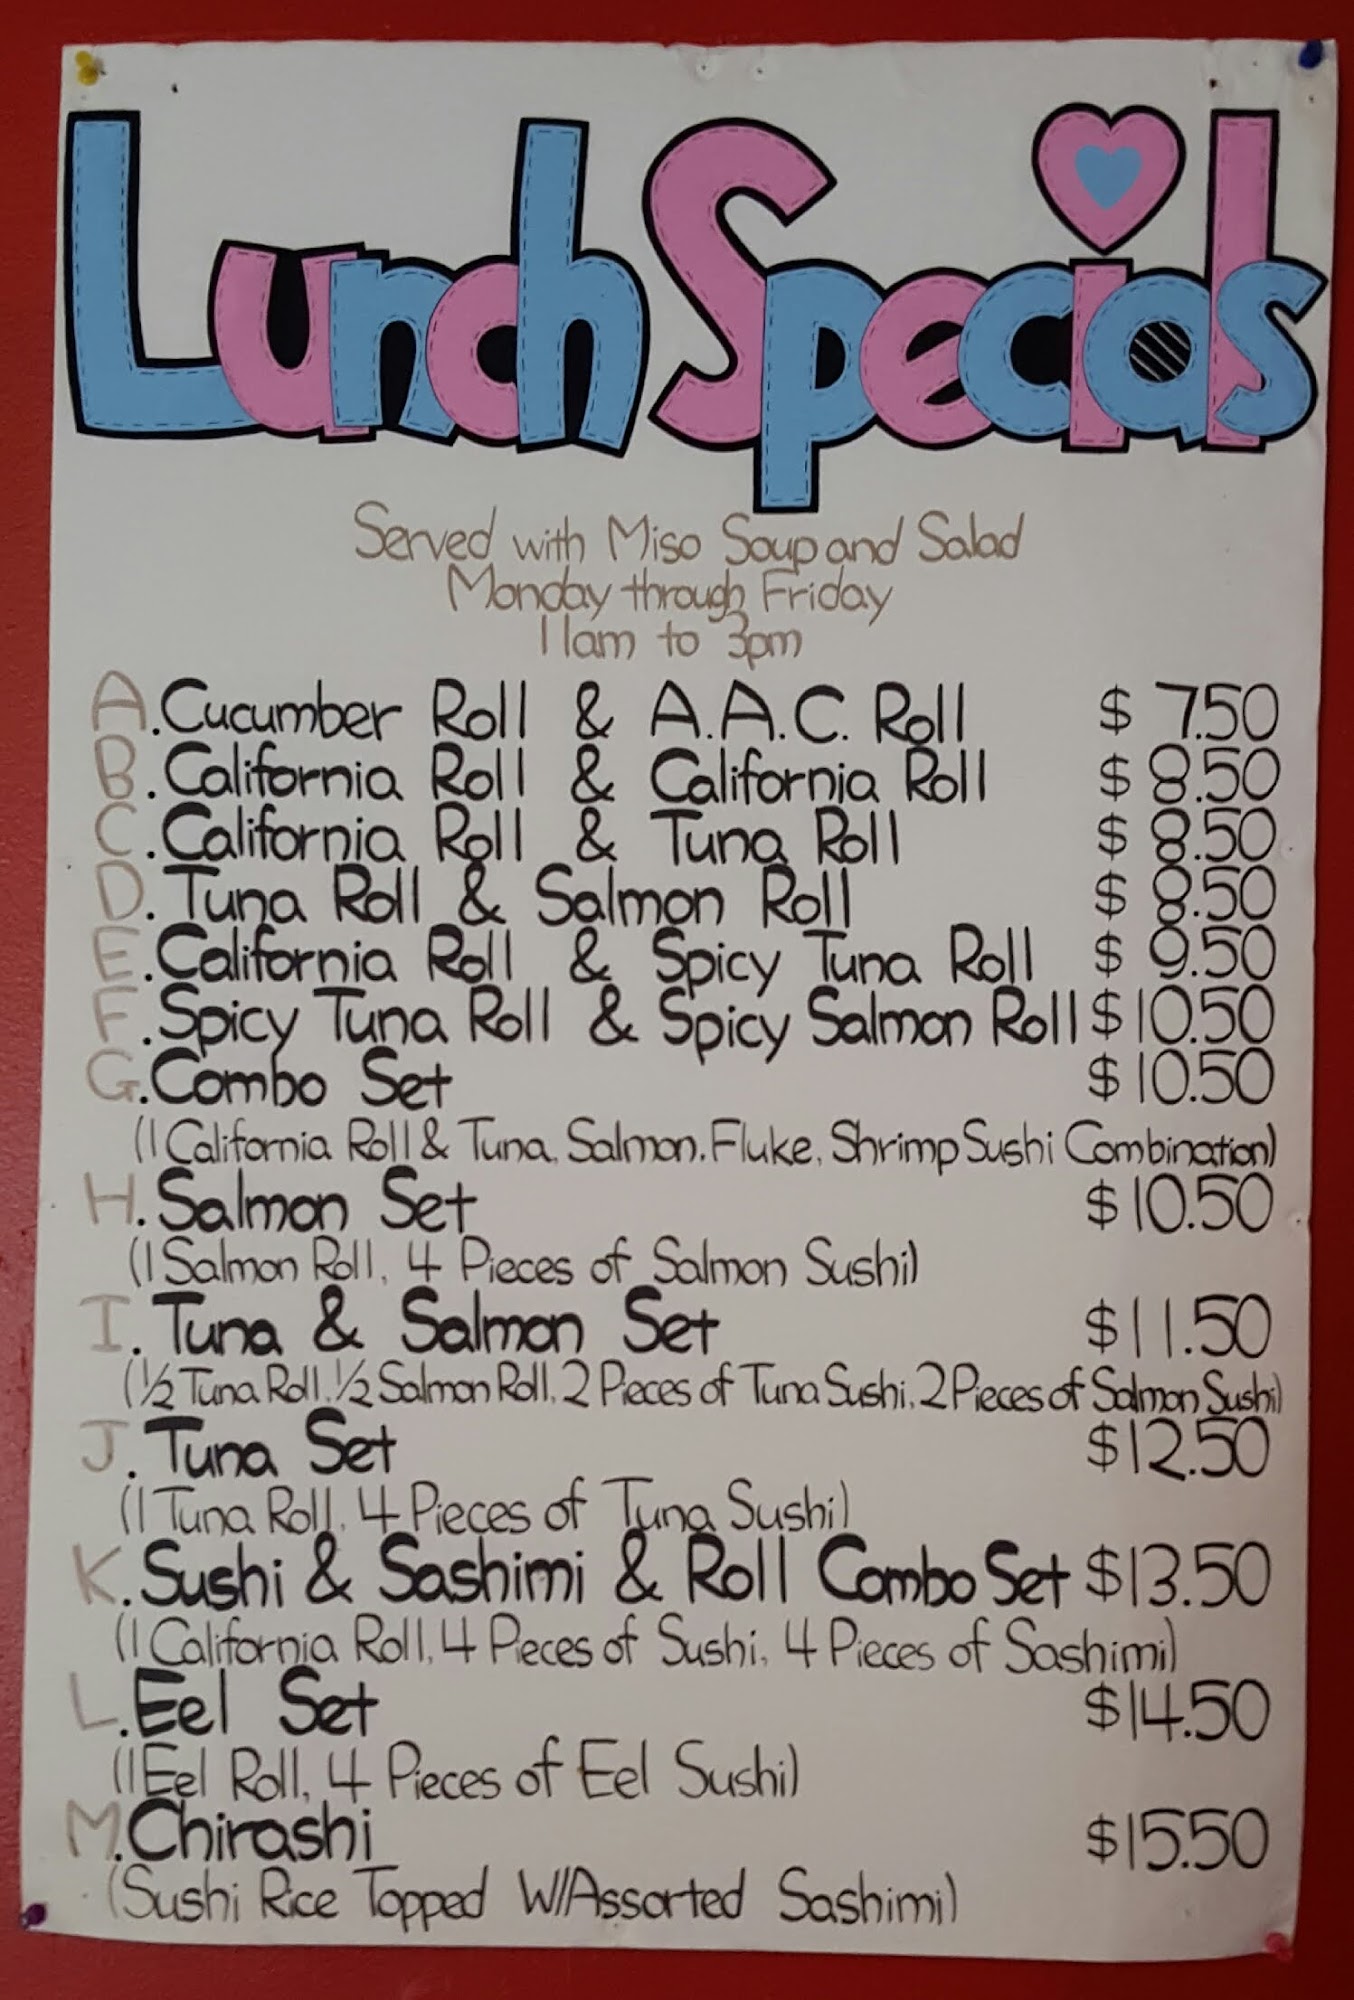 Lunch Specials
Served with Miso Soup and Salad
Monday through Friday
11am to 3pm
A. Cucumber Roll & A.A.C. Roll $ 7.50
B. California Roll & California Roll $ 8.50
C. California Roll & Tuna Roll $ 8.50
D. Tuna Roll & Salmon Roll $ 8.50
E. California Roll & Spicy Tuna Roll $ 9.50
F. Spicy Tuna Roll & Spicy Salmon Roll $10.50
G. Combo Set $10.50
(1 California Roll & Tuna, Salmon, Fluke, Shrimp Sushi Combination)
H. Salmon Set $10.50
(1 Salmon Roll, 4 Pieces of Salmon Sushi)
I. Tuna & Salmon Set $11.50
(1/2 Tuna Roll, 1/2 Salmon Roll, 2 Pieces of Tuna Sushi, 2 Pieces of Salmon Sushi)
J. Tuna Set $12.50
(1 Tuna Roll, 4 Pieces of Tuna Sushi)
K. Sushi & Sashimi & Roll Combo Set $13.50
(1 California Roll, 4 Pieces of Sushi, 4 Pieces of Sashimi)
L. Eel Set $14.50
(1 Eel Roll, 4 Pieces of Eel Sushi)
M. Chirashi $15.50
(Sushi Rice Topped W/Assorted Sashimi)